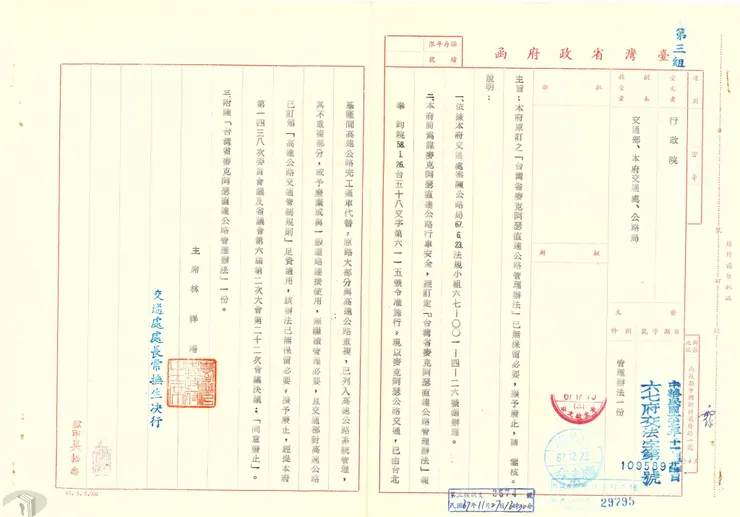 臺灣省政府函
第三組
檔號
保存年限
受文者
行政院
副本
收受者
交通部、本府交通處、公路局
管理辦法一份
六七府交法字第
109589
號
主旨：本府原訂之「台灣省麥克阿瑟直達公路管理辦法」已無保留必要，擬予廢止，請 鑒核。
說明：
一、依據本府交通處案陳公路局67.6.23.法規小組六七—〇〇一—四—二六號函辦理。
二、本府前為麥克阿瑟直達公路行車安全，經訂定「台灣省麥克阿瑟直達公路管理辦法」報
奉 鈞院58.1.26.台五十八交字第六一一五號令准施行。現以麥克阿瑟公路交通，已由台北
基隆間高速公路完工通車代替，原路大部分與高速公路重複，已列入高速公路系統管理，
其不重複部分，或予廢棄或與一般道路連接使用，無繼續管理必要，且交通部對高速公路
已訂頒「高速公路交通管制規則」足資適用，該辦法已無保留必要，擬予廢止，經提本府
第一四三八次委員會議及省議會第六屆第二次大會第二十二次會議決議：「同意廢止」。
三、附陳「台灣省麥克阿瑟直達公路管理辦法」一份。
主席林洋港
交通處處長常撫生決行
67.12.23
3674
民國67年11月27日
29795